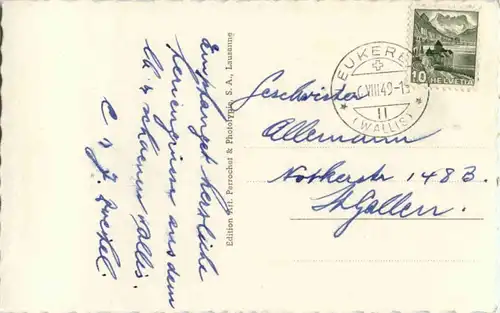 Empfanget herzliche
Feriengrüsse aus dem
schoenen Wallis.
C. J.
Edition Art. Perrochet & Phototypie, S. A., Lausanne
LEUKERBAD
VIII 49-1
II
(WALLIS)
10
HELVETIA
Geschwister
Allemann
Notkerstr 148 B.
St. Gallen.